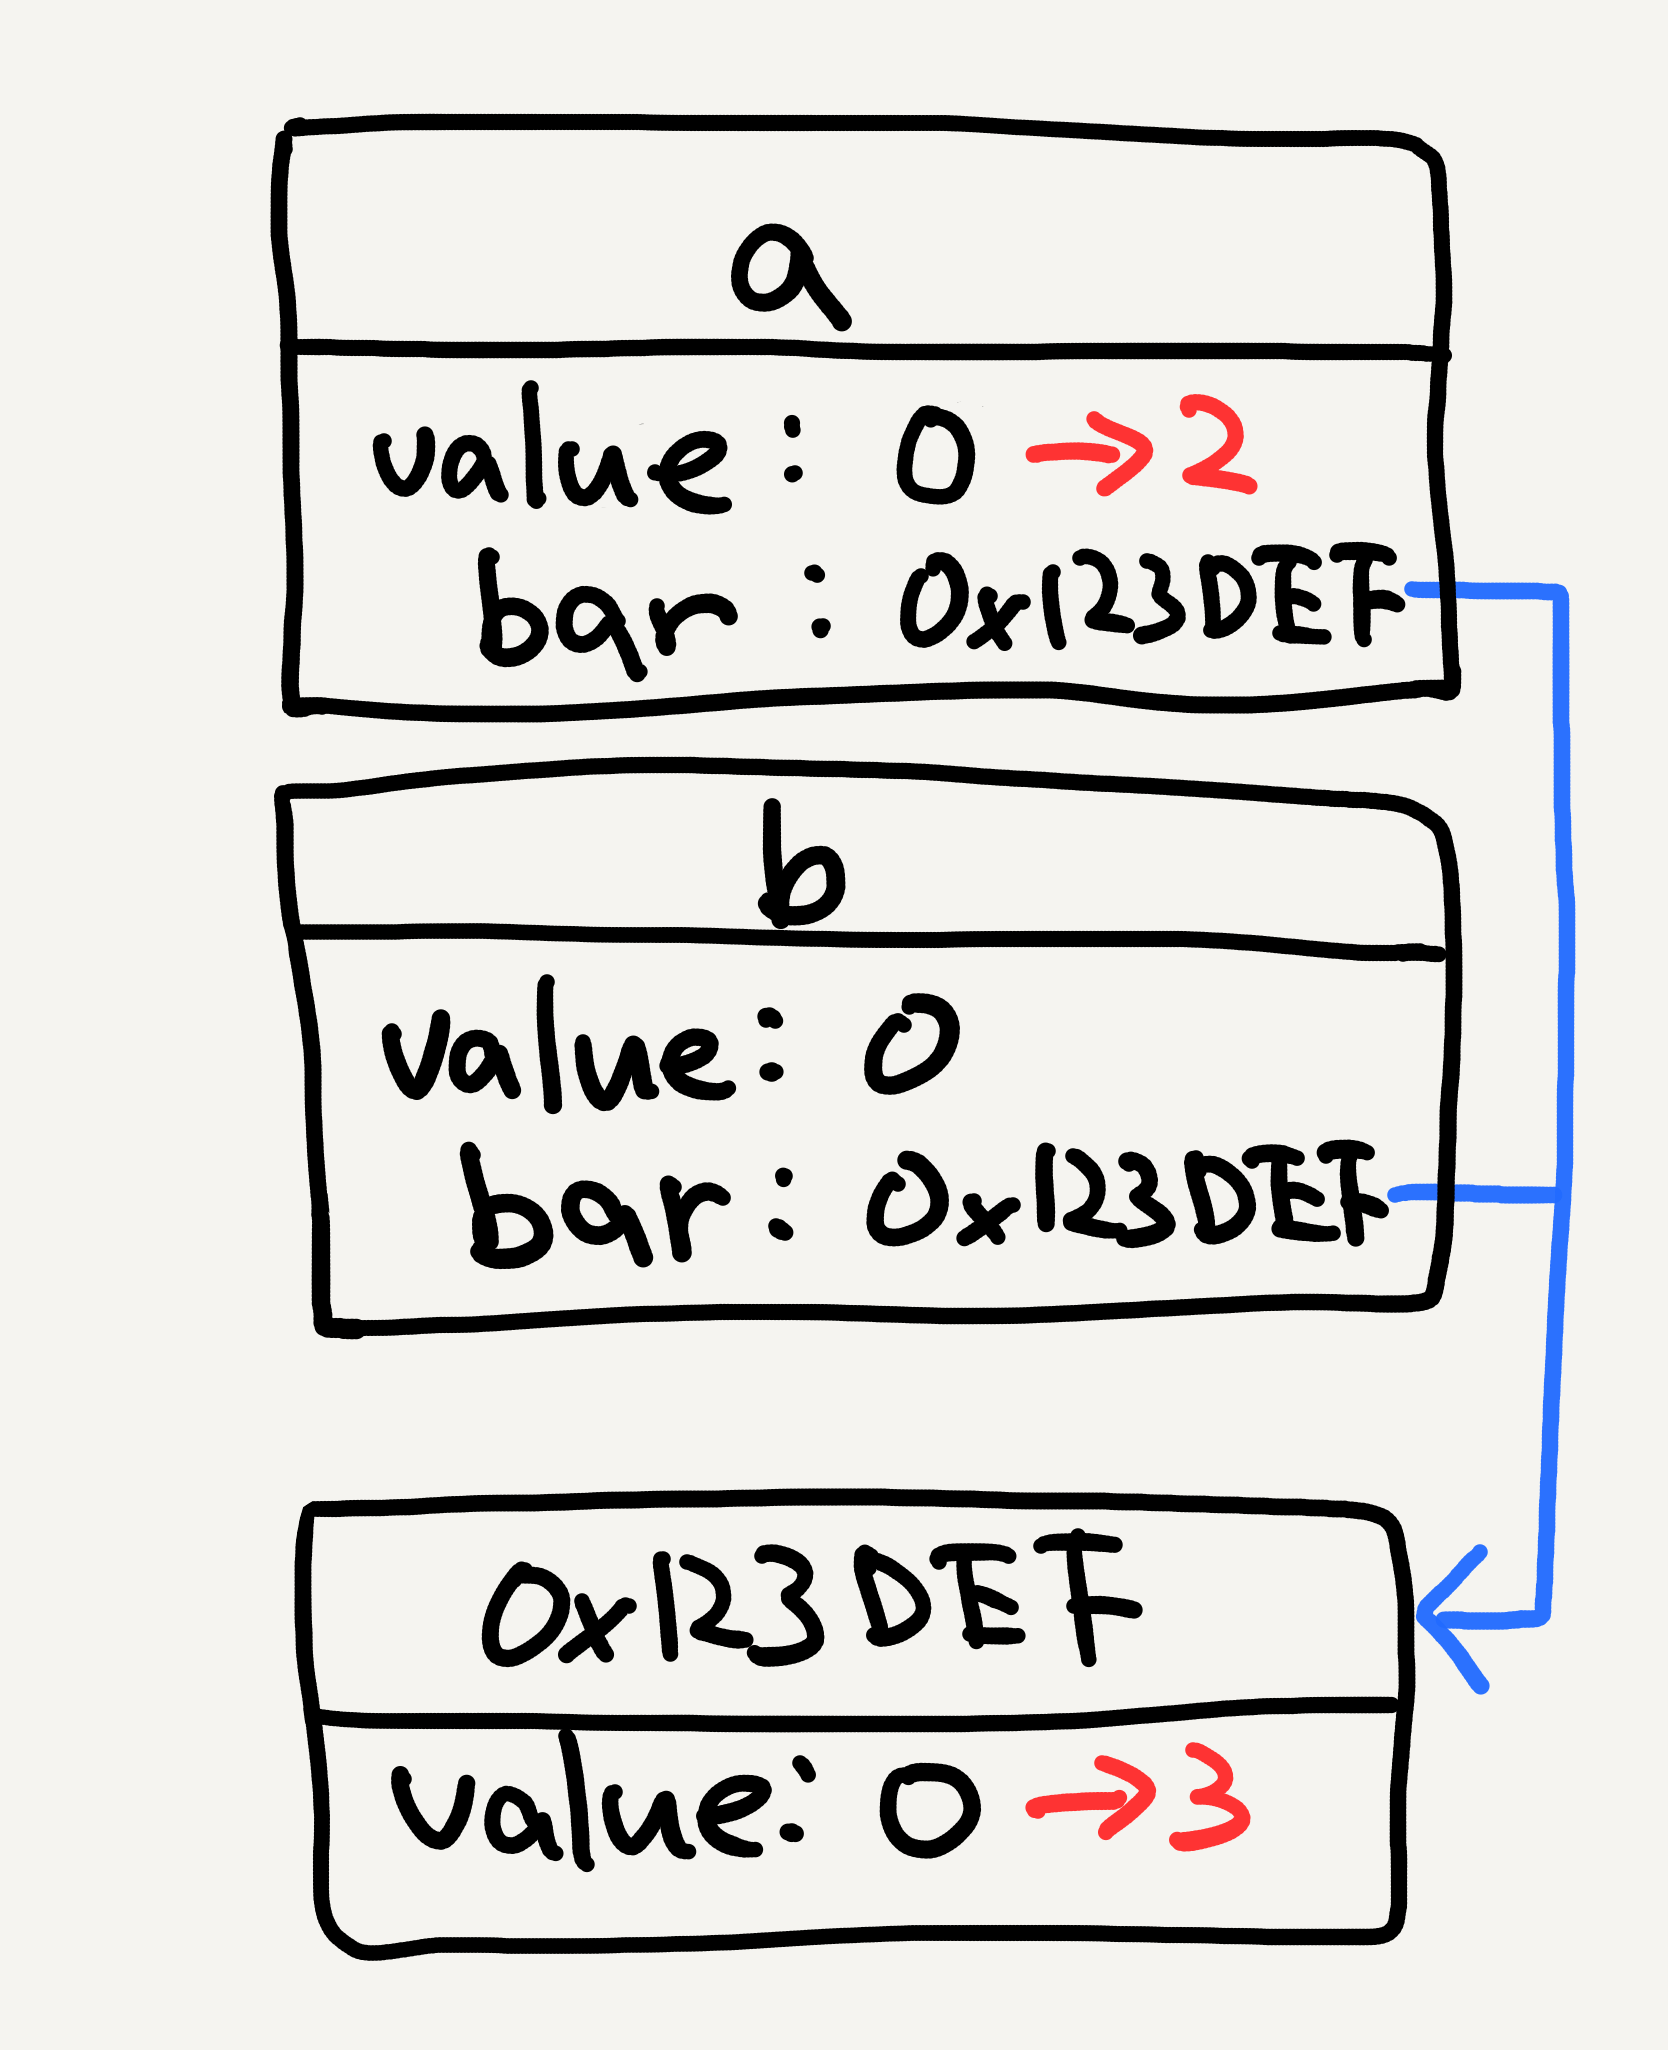 a
value: 0 →2
bar: 0x123DEF
b
value: 0
bar: 0x123DEF
0x123DEF
value: 0 →3